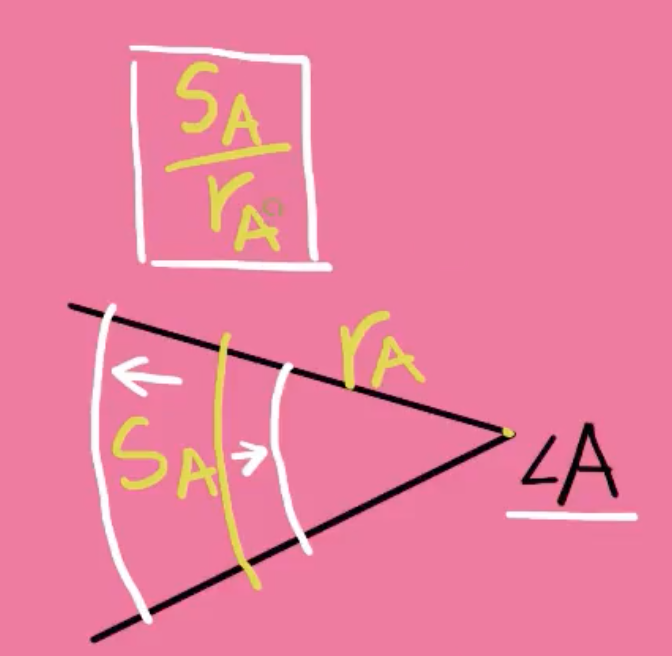 S_A
r_A
r_A
S_A
∠A